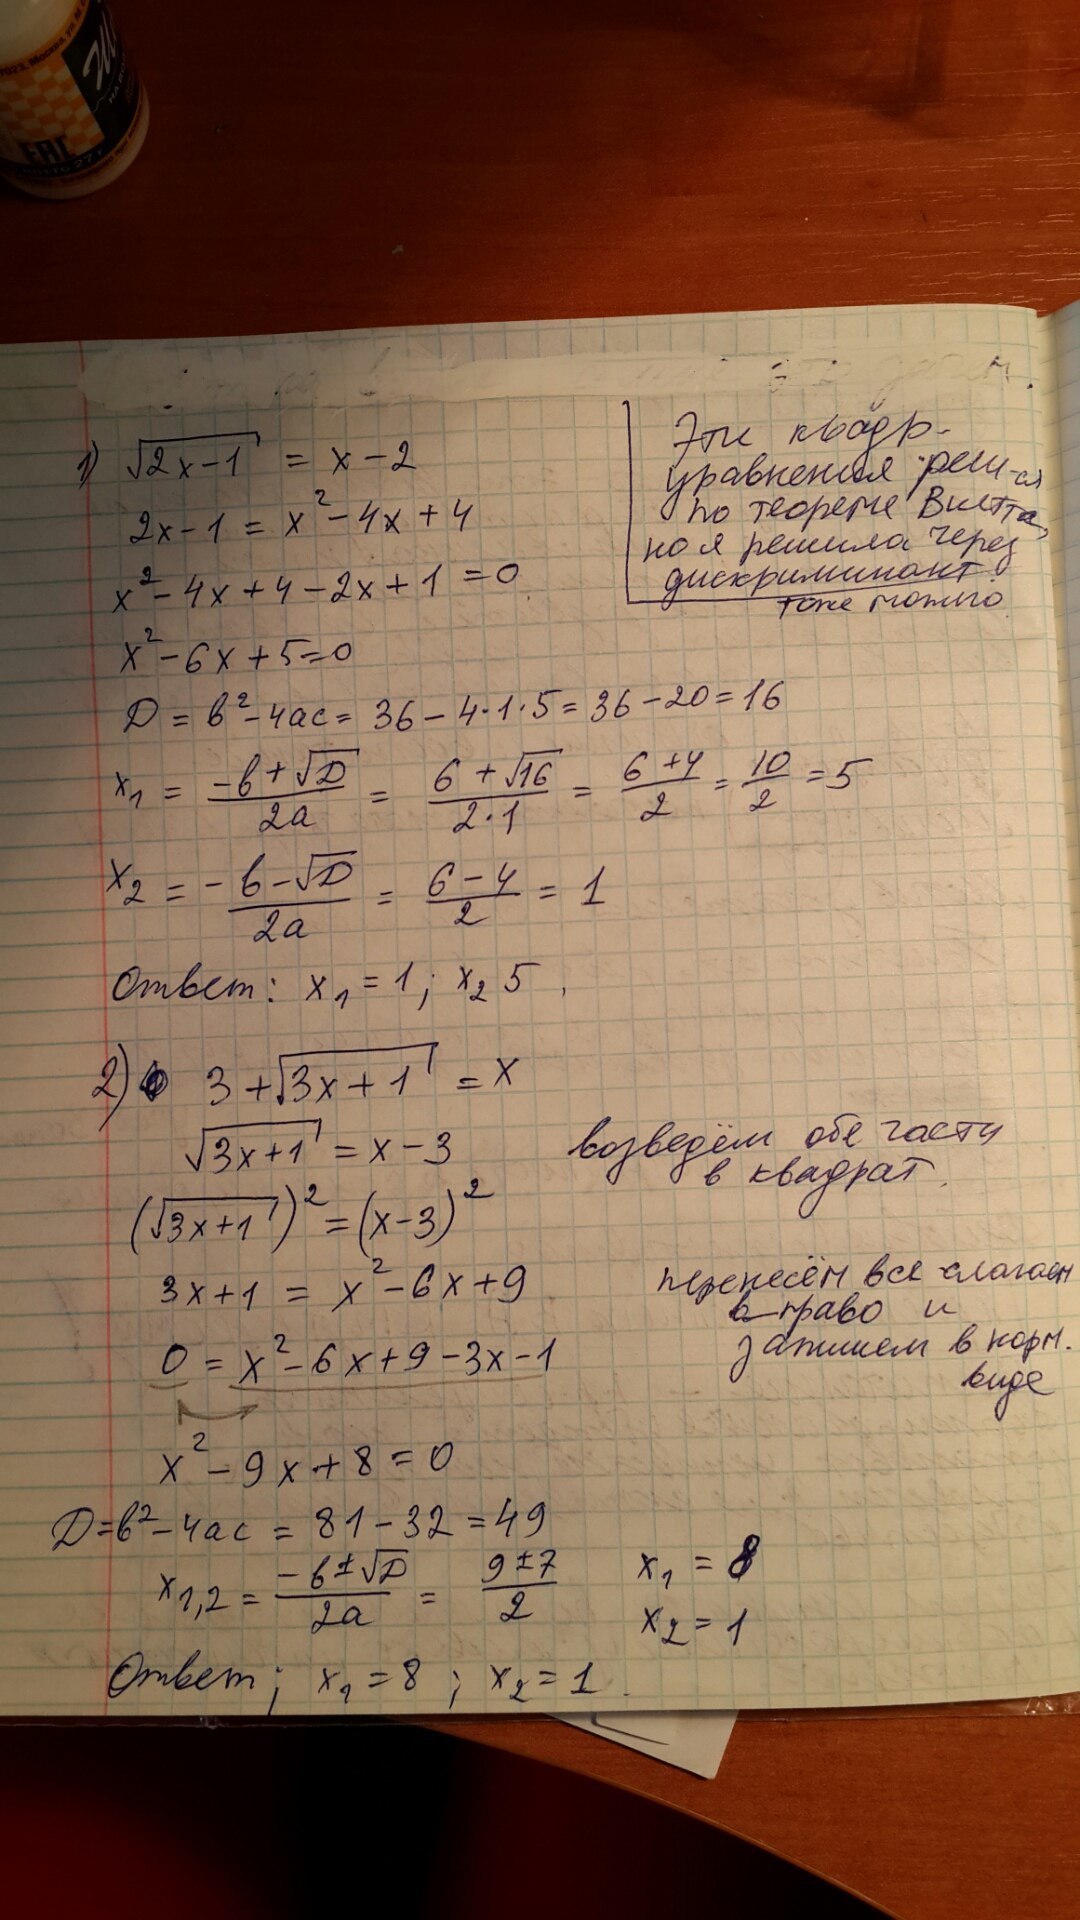 ЕАС
1) √(2x-1) = x-2
2x-1 = x²-4x+4
x²-4x+4-2x+1 = 0
x²-6x+5=0
D = b²-4ac = 36-4·1·5 = 36-20 = 16
x₁ = (-b+√D)/(2a) = (6+√16)/(2·1) = (6+4)/2 = 10/2 = 5
x₂ = (-b-√D)/(2a) = (6-4)/2 = 1
Ответ: x₁ = 1; x₂ 5
Эти квадр.
уравнения реш-ся
по теореме Виетта,
но я решила через
дискриминант.
тоже можно
2) 3+√(3x+1) = x
√(3x+1) = x-3
возведём обе части
в квадрат.
(√(3x+1))² = (x-3)²
3x+1 = x²-6x+9
перенесём все слагаем
в право и
запишем в норм.
виде
0 = x²-6x+9-3x-1
x²-9x+8=0
D=b²-4ac = 81-32 = 49
x₁,₂ = (-b±√D)/(2a) = (9±7)/2
x₁ = 8
x₂ = 1
Ответ; x₁ = 8; x₂ = 1.